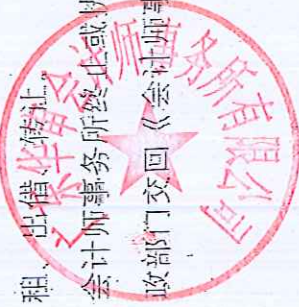 租、出借、转让。
会计师事务所终止或执
政部门交回《会计师事
会计师事务所有限公司